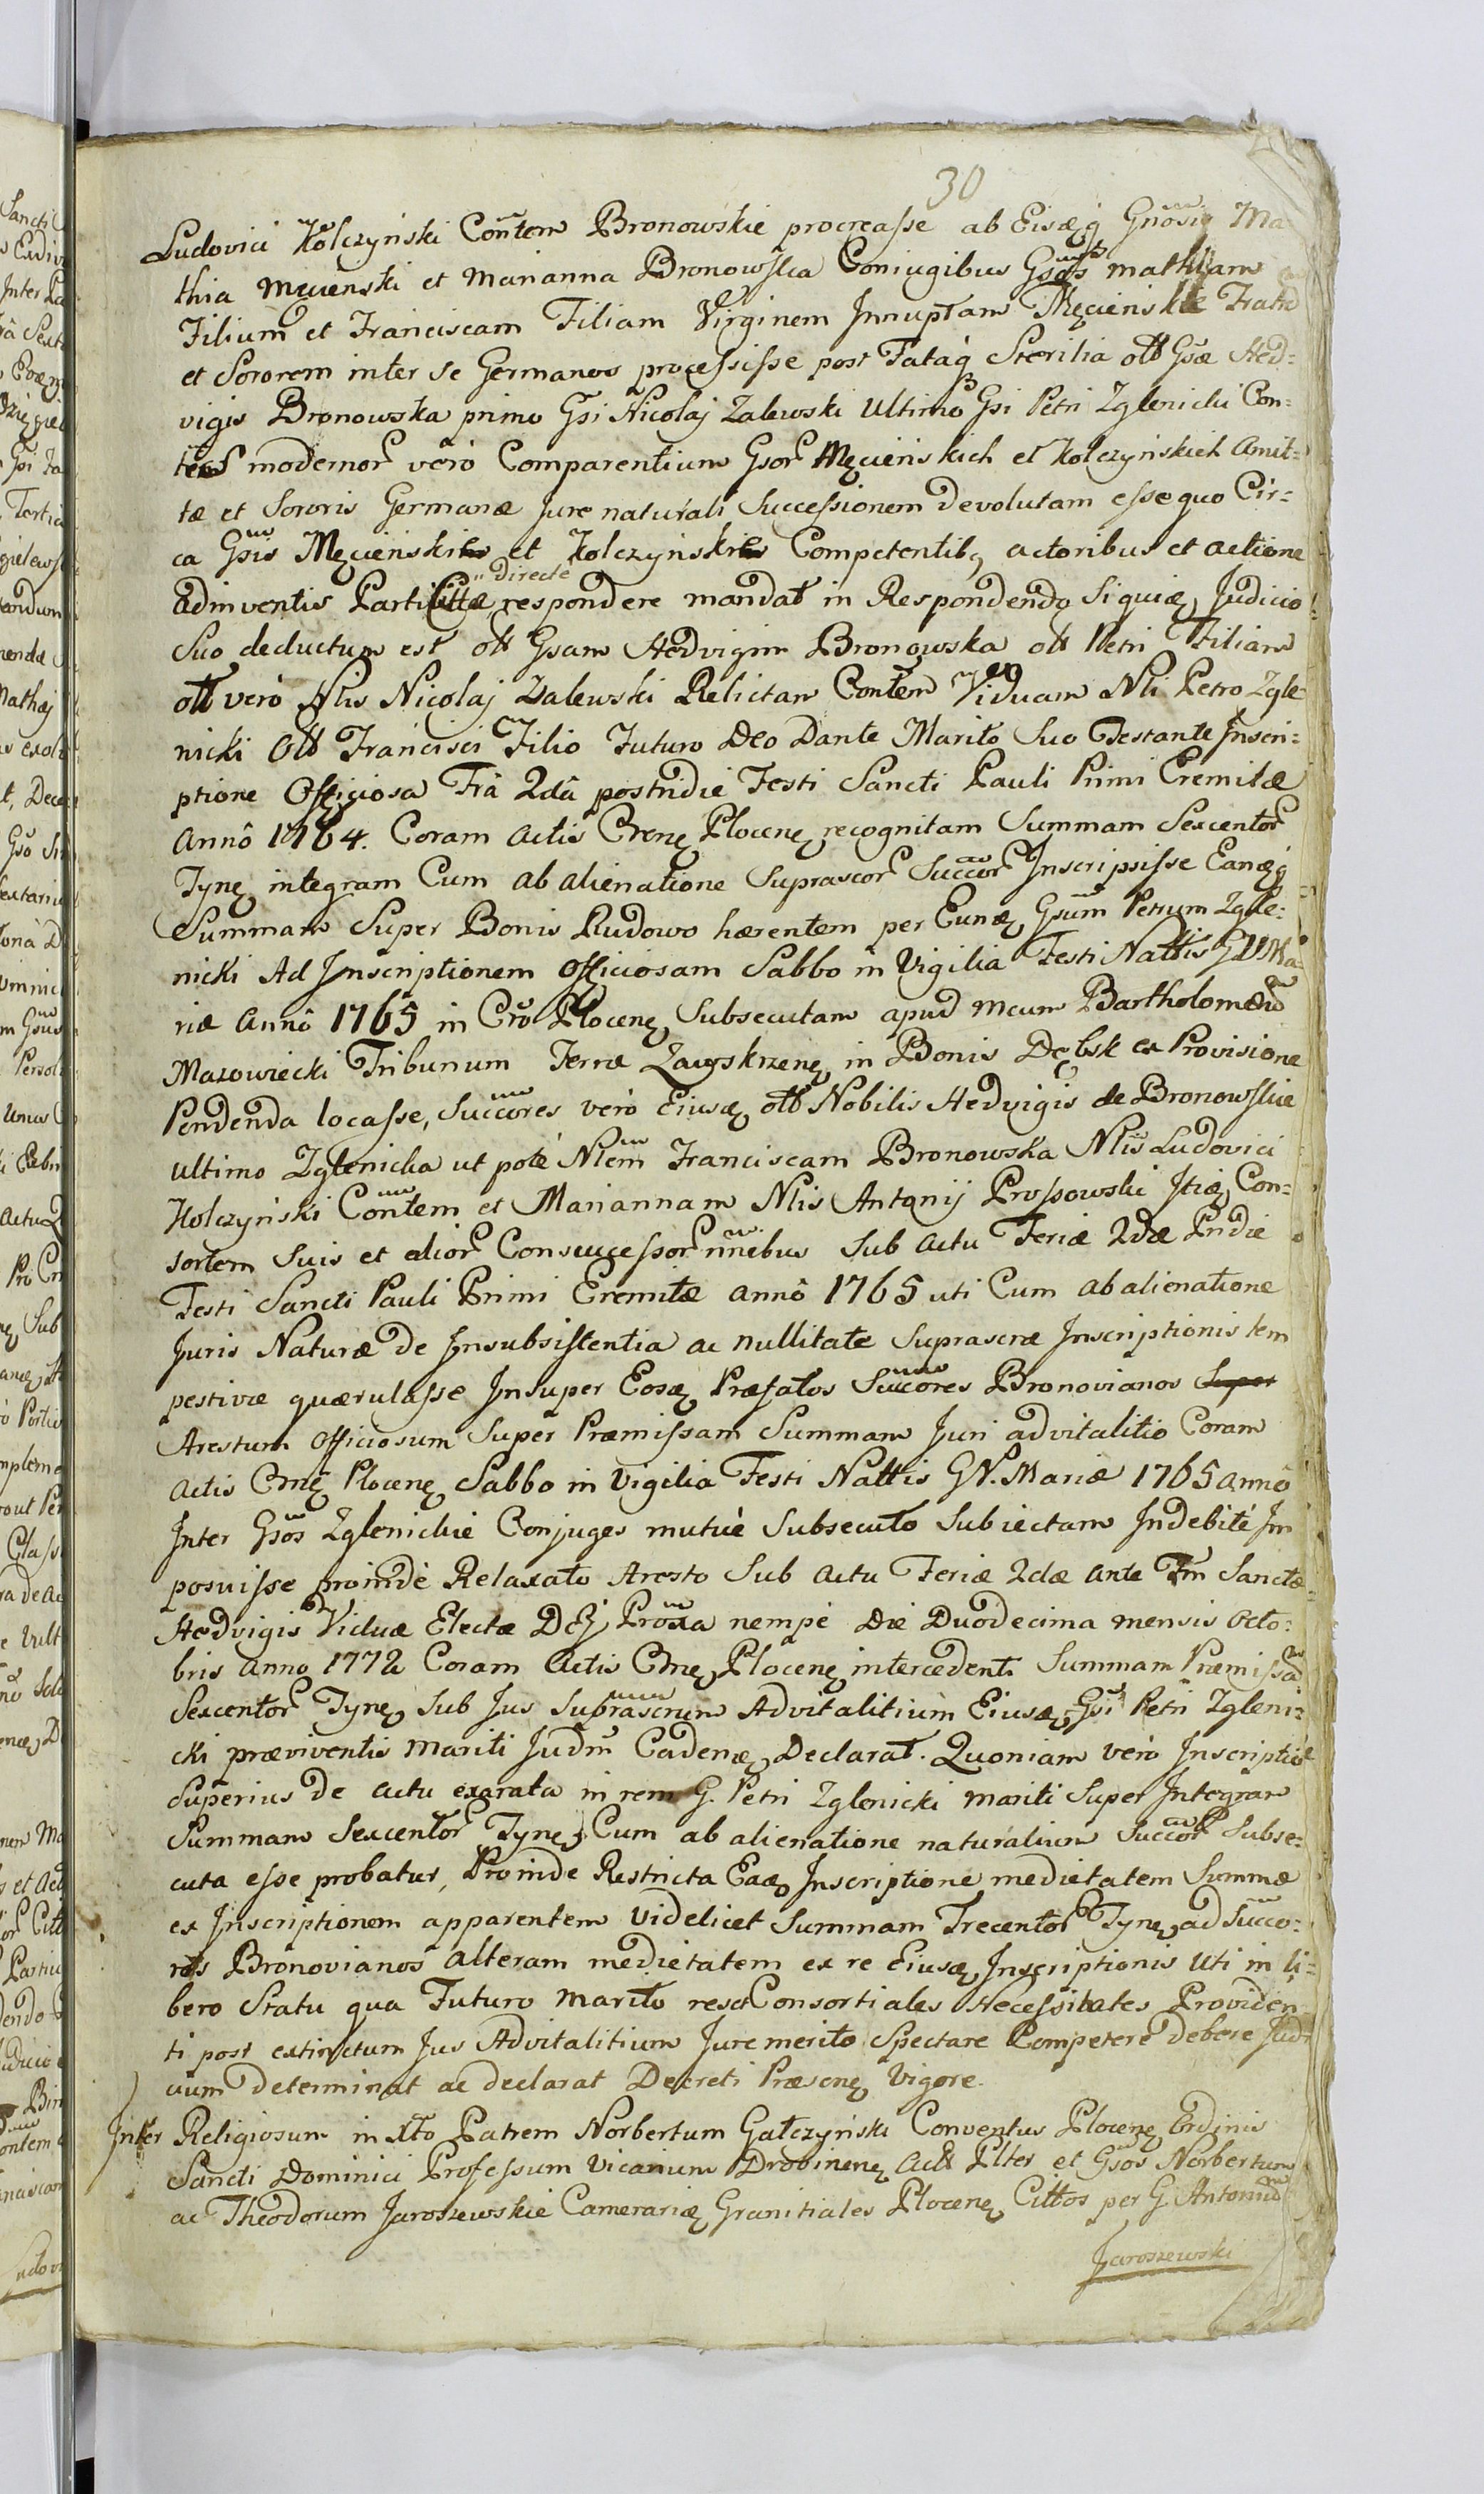 30
Ludovici Kolczyński Contem Bronowskie procreasse ab Eisqg Gnosis Ma
thia Męcienski et Marianna Bronowska Coniugibus Gsos Mathiam
Filium et Franciscam Filiam Virginem Innuptam Męcienskie Fratre
et Sororem inter se Germanos processisse post Fataq Sterilia olt Gsæ Hed=
vigis Bronowska primo Gsi Nicolaj Zalewski Ultimo Gsi Petri Zglenicki Con=
tem modernor vero Comparentium Gsor Męcieńskich et Kolczyńskich Amit=
tæ et Sororis Germanæ jure naturali Successionem devolutam esse quo Cir=
ca Gsis Męcieński et Kolczyński Competentibq actoribus et actione
"directe
adinventis Parti Cittæ respondere mandat in Respondendo siquid Judicio
Suo deductum est olt Gsam Hedvigim Bronowska olt Petri Filiam
olt vero Nlis Nicolaj Zalewski Relictam Contem Viduam Nli Petro Zgle
nicki Olt Francisci Filio Futuro Deo Dante Marito Suo Testante Inscri=
ptione Officiosa Fia 2da postridie Festi Sancti Pauli Primi Eremitæ
Annô 1764. Coram actis Crens Plocens recognitam Summam Sexcentor
Tyns integram Cum ab alienatione Suprascor Succor Inscripsisse Eamqg
Summam Super Bonis Rudowo hærentem per Eund Gsum Petrum Zgle=
nicki Ad Inscriptionem Officiosam Sabbo in Vigilia Festi Nattis G V Ma=
riæ Annô 1765 in Cro Plocens Subsecutam apud Mcum Bartholomæu
Mazowiecki Tribunum Terræ Zawskrzens in Bonis Dębsk ex Provisione
Pendenda locasse, Succores vero Eiusd olt Nobilis Hedvigis de Bronowskie
ultimo Zglenicka ut pote Nlem Franciscam Bronowska Nlis Ludovici
Kolczyński Contem et Mariannam Nlis Antonij Prossowski Itid Con=
sortem Suis et alior Consuccessor nnebus Sub actu Feriæ 2dæ Pridie
Festi Sancti Pauli Primi Eremitæ annô 1765 uti Cum ab alienatione
Juris Naturæ de Insubsistentia ac nullitate Suprascræ Inscriptionis tem
pestivæ quærulasse Insuper Eosd Præfatos Succores Bronovianos Super
Arestum Officiosum Super Præmissam Summam Juri advitalitio Coram
Actis Crens Plocens Sabbo in Vigilia Festi Nattis G V. Mariæ 1765 annô
Inter Gsos Zglenickie Conjuges mutue Subsecuto Subiectam Indebite Im
posuisse proinde Relaxato Aresto Sub Actu Feriæ 2dæ ante Fm Sanctæ
Hedvigis Viduæ Electæ Dej Proxa nempe Die Duodecima mensis Octo=
bris anno 1772 Coram Actis Crens Plocens intercedenti Summam Præmissa
Sexcentor Tyns Sub Jus Suprascrum Advitalitium Eiusd Gsi Petri Zgleni=
cki præviventis Mariti Judm Cadens Declarat. Quoniam vero Inscriptio
Superius de actu exarata in rem G. Petri Zglenicki mariti Super Integram
Summam Sexcentor Tyns Cum ab alienatione naturalium Succor Subse=
cuta esse probatur, Proinde Restricta Ead Inscriptione medietatem Summæ
ex Inscriptionem apparentem Videlicet Summam Trecentor Tyns ad Succo=
res Bronovianos Alteram medietatem ex re Eiusd Inscriptionis Uti in li=
bero Statu qua Futuro Marito resct Consortiales Necessitates Providen
ti post extinctum Jus Advitalitium Jure merito Spectare Competere debere Judi
cium Determinat ac declarat Decreti Præsens Vigore.
Inter Religiosum in Xto Patrem Norbertum Gałczyński Conventus Plocens Ordinis
Sancti Dominici Professum Vicarium Drobinens Act Plter et Gsos Norbertum
ac Theodorum Jaroszewskie Camerarid Granitiales Plocens Cittos per G. Antoniu
Jaroszewski